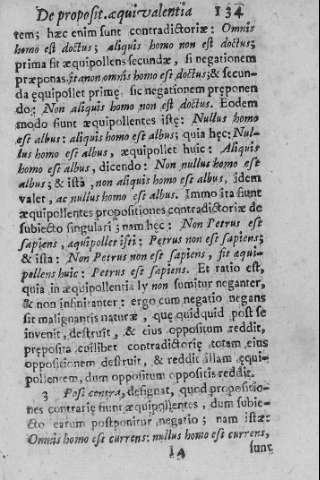 De proposit. æquivalentia 134
tem; hæc enim sunt contradictoriæ: Omnis
homo est doctus; aliquis homo non est doctus;
prima fit æquipollens secundæ, si negationem
præponas: non omnis homo est doctus; & secun-
da ęquipollet primę, sic negationem preponen
do: Non aliquis homo non est doctus. Eodem
modo fiunt æquipollentes istę: Nullus homo
est albus: aliquis homo est albus; quia hęc: Nul-
lus homo est albus, æquipollet huic: Aliquis
homo est albus, dicendo: Non nullus homo est
albus; & istà, non aliquis homo est albus, idem
valet, ac nullus homo est albus. Immo ita fiunt
æquipollentes propositiones contradictoriæ de
subiecto singulari; nam hęc: Non Petrus est
sapiens, æquipollet isti: Petrus non est sapiens;
& ista: Non Petrus non est sapiens, fit æqui-
pollens huic: Petrus est sapiens. Et ratio est,
quia in æquipollentia ly non sumitur neganter,
& non infinitanter: ergo cum negatio negans
sit malignantis naturæ, quę quidquid post se
invenit, destruit, & eius oppositum reddit,
pręposita cuilibet contradictorię totam eius
oppositionem destruit, & reddit illam ęqui-
pollentem, dum oppositum oppositis reddit.
3 Post contra, designat, quod propositio-
nes contrarię fiunt æquipollentes, dum subie-
cto earum postponitur negatio; nam istæ:
Omnis homo est currens: nullus homo est currens,
14 sunt